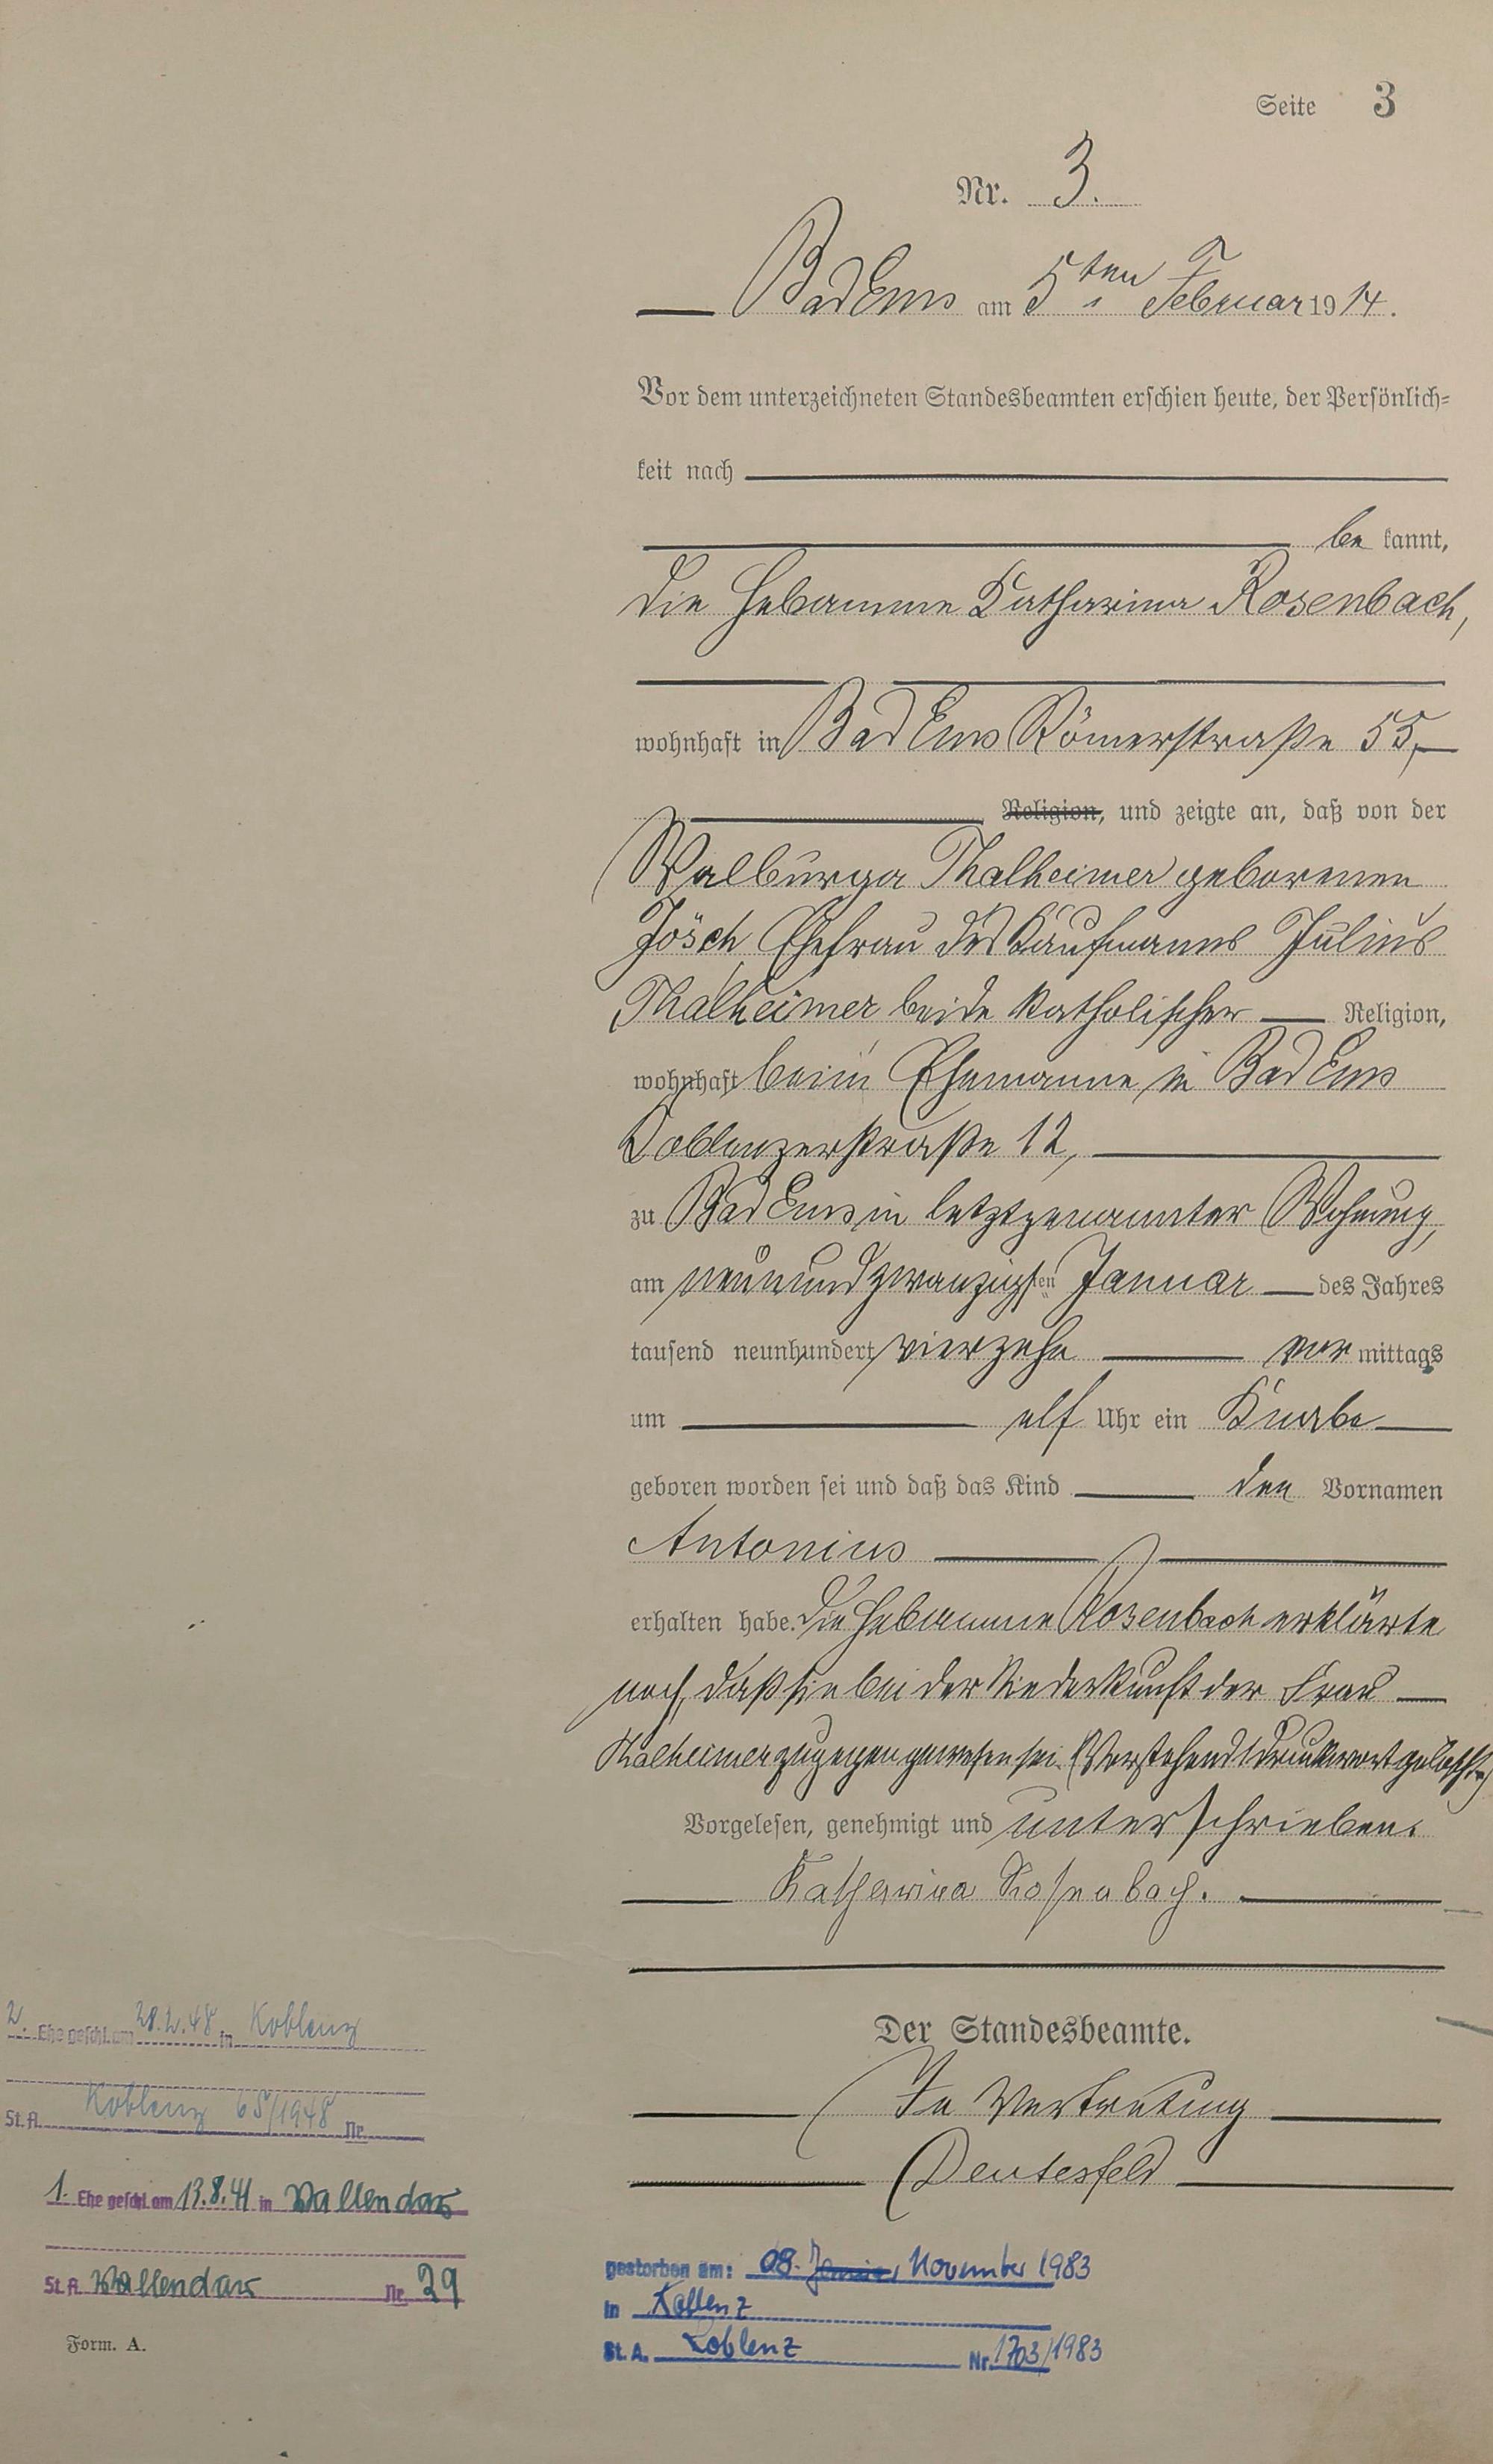 Seite 3
Nr. 3.
Bad Ems am 5ten Februar 1914.
Vor dem unterzeichneten Standesbeamten erschien heute, der Persönlich-
keit nach
be kannt,
die Hebamme Katharina Rosenbach,
wohnhaft in Bad Ems Römerstraße 55,
Religion, und zeigte an, daß von der
Walburga Thalheimer geborenen
Jösch Ehefrau des Kaufmanns Julius
Thalheimer beide katholischer Religion,
wohnhaft beim Ehemanne in Bad Ems
Coblenzerstraße 12,
zu Bad Ems in letztgenannter Wohnung,
am neunundzwanzigsten Januar des Jahres
tausend neunhundert vierzehn vor mittags
um elf Uhr ein Knabe
geboren worden sei und daß das Kind den Vornamen
Antonius
erhalten habe. Die Hebamme Rosenbach erklärte
noch, daß sie bei der Niederkunft der Frau
Thalheimer zugegen gewesen sei. (Vorstehend 1 Druckwort gelöscht.)
Vorgelesen, genehmigt und unterschrieben.
Katharina Rosenbach.
Der Standesbeamte.
In Vertretung
Deutesfeld
2. Ehe geschl. am 28.2.48 in Koblenz
St. A. Koblenz 65/1948 Nr.
1. Ehe geschl. am 13.8.41 in Vallendar
St. A. Vallendar Nr. 29
Form. A.
gestorben am: 08. Januar, November 1983
in Koblenz
St. A. Koblenz Nr. 1703/1983